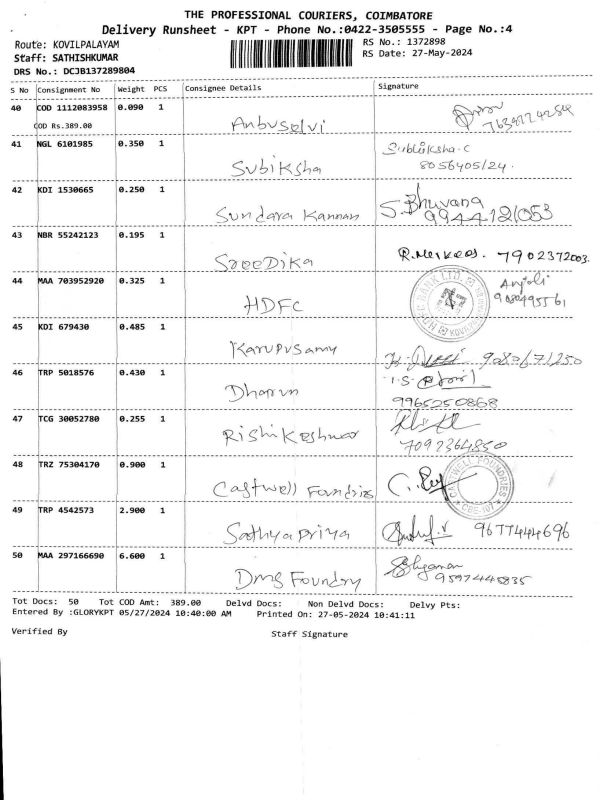 THE PROFESSIONAL COURIERS, COIMBATORE
Delivery Runsheet - KPT - Phone No.:0422-3505555 - Page No.:4
Route: KOVILPALAYAM
RS No.: 1372898
Staff: SATHISHKUMAR
RS Date: 27-May-2024
DRS No.: DCJB137289804
S No Consignment No Weight PCS Consignee Details Signature
40 COD 1112083958 0.090 1 Anbuselvi
COD Rs.389.00
41 NGL 6101985 0.350 1 Subiksha Subhiksha.C
8056405124.
42 KDI 1530665 0.250 1 Sundara Kannan S. Bhuvana
9944121053
43 NBR 55242123 0.195 1 SreeDika R. 7902372003.
44 MAA 703952920 0.325 1 HDFC Anjali
45 KDI 679430 0.485 1 Karupusamy 9080671250
46 TRP 5018576 0.430 1 Dharun
9965250868
47 TCG 30052780 0.255 1 Rishikeshwar
7092364850
48 TRZ 75304170 0.900 1 Castwell Foundries
CASTWELL FOUNDRIES CBE-107
49 TRP 4542573 2.900 1 Sathyapriya 9677444696
50 MAA 297166690 6.600 1 Dmg Foundry
9597445835
Tot Docs: 50 Tot COD Amt: 389.00 Delvd Docs: Non Delvd Docs: Delvy Pts:
Entered By :GLORYKPT 05/27/2024 10:40:00 AM Printed On: 27-05-2024 10:41:11
Verified By Staff Signature